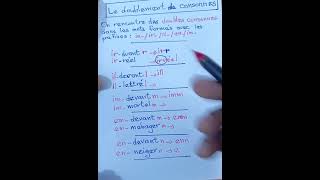 Le doublement de consonnes
On rencontre des doubles consonnes
dans les mots formés avec les
préfixes : in-/im-/il-/en-/em-
ir- devant r → irr
ir-réel → irréel
il devant l → ill
il- lettré →
im- devant m → imm
im- mortel m →
em- devant m → emm
en- ménager m →
en- devant n → enn
en- neiger n → e